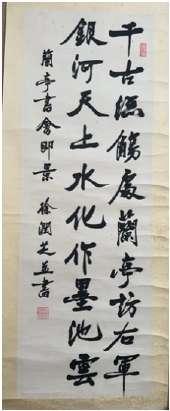 千古流觴處蘭亭訪右軍
銀河天上水化作墨池雲
蘭亭書會即景 徐潤芝並書